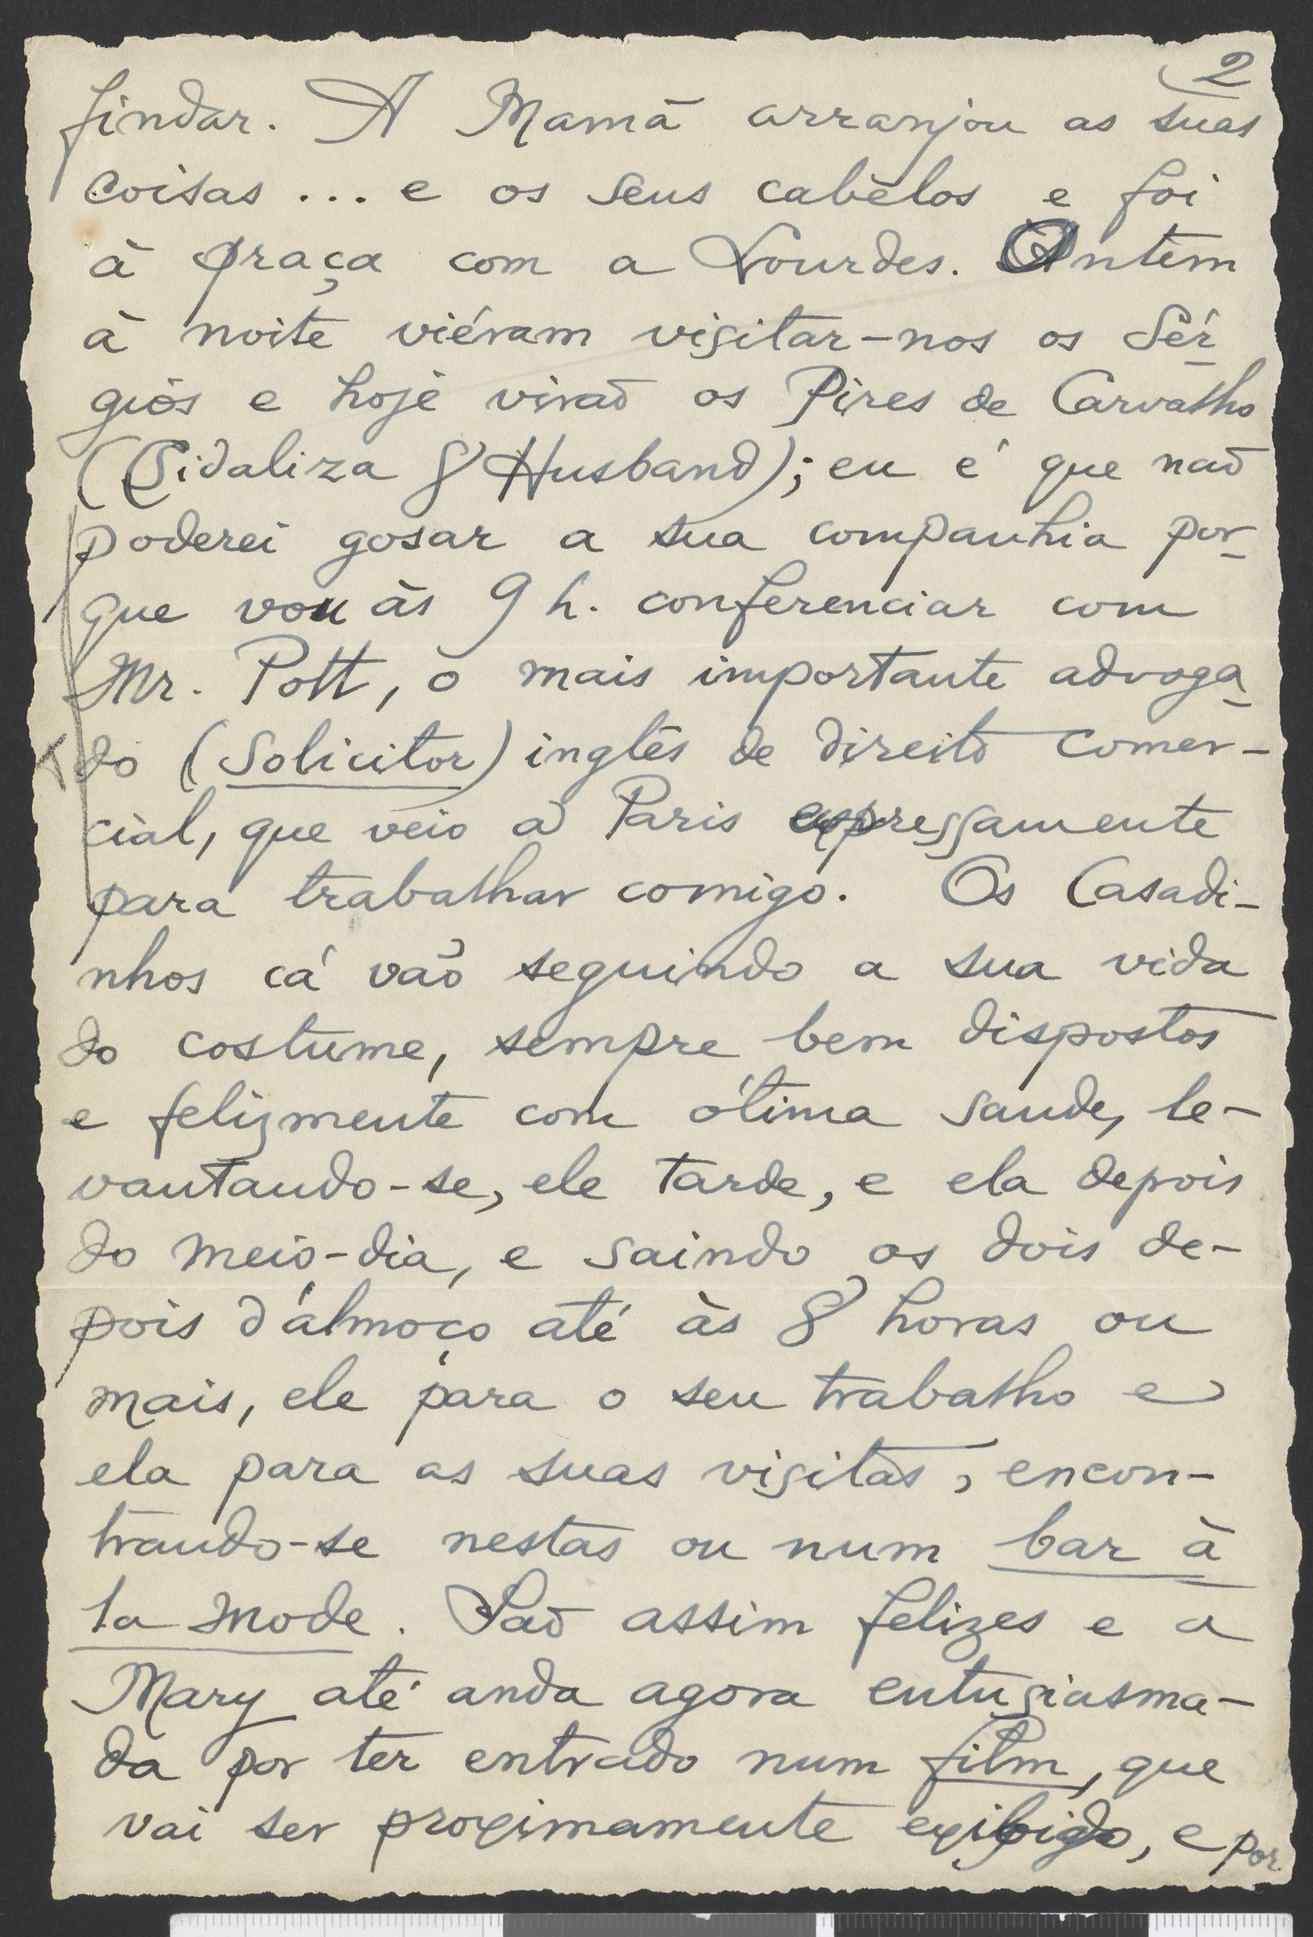 2
findar. A Mamã arranjou as suas
coisas ... e os seus cabêlos e foi
à praça com a Lourdes. Ontem
à noite viéram visitar-nos os Sér-
gios e hoje virão os Pires de Carvalho
(Cidaliza & Husband); eu é que não
poderei gosar a sua companhia por-
que vou às 9 h. conferenciar com
Mr. Pott, o mais importante advoga-
do (Solicitor) inglês de direito comer-
cial, que veio a Paris expressamente
para trabalhar comigo. Os Casadi-
nhos cá vão seguindo a sua vida
do costume, sempre bem dispostos
e felizmente com ótima saude, le-
vantando-se, ele tarde, e ela depois
do meio-dia, e saindo os dois de-
pois d'almoço até às 8 horas ou
mais, ele para o seu trabalho e
ela para as suas visitas, encon-
trando-se nestas ou num bar à
la mode. São assim felizes e a
Mary até anda agora entusiasma-
da por ter entrado num film, que
vai ser proximamente exibido, e por